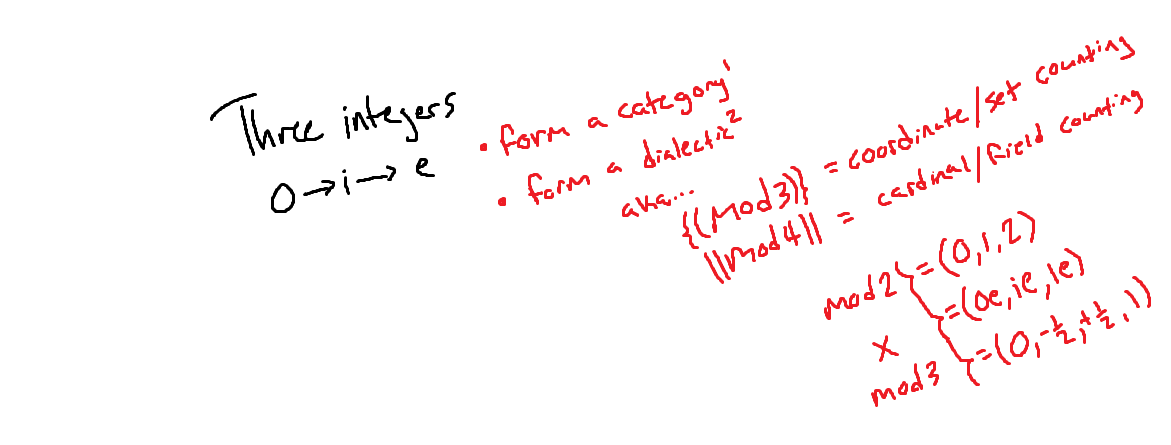 Three integers
0→i→e
• form a category¹
• form a dialectic²
aka...
{(Mod3)} = coordinate/set counting
||Mod4|| = cardinal/field counting
mod2 }=(0,1,2)
x }=(0e,ie,1e)
mod3 }=(0,-½,+½,1)